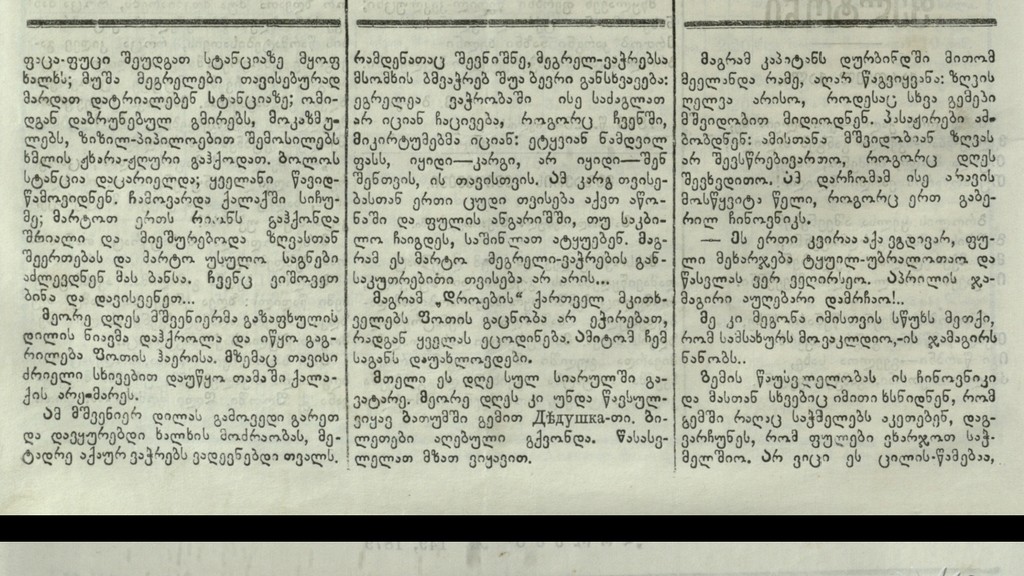 ფაცა-ფუცი შეუდგათ სტანციაზე მყოფ
ხალხს; მუშა მეგრელები თავისებურად
მარდათ დატრიალებენ სტანციაზე; ომი-
დგან დაბრუნებულ გმირებს, მოკაზმუ-
ლებს, ზიზილ-პიპილოებით შემოსილებს
ხმლის ჟხარა-ჟღური გაჰქოდათ. ბოლოს
სტანცია დაცარიელდა; ყველანი წავიდ-
წამოვიდნენ. ჩამოვარდა ქალაქში სიჩუ-
მე; მარტოთ ერთს რიონს გაჰქონდა
შრიალი და მიეშურებოდა ზღვასთან
შეერთებას და მარტო უსულო საგნები
აძლევდნენ მას ბანსა. ჩვენც ვიშოვეთ
ბინა და დავისვენეთ...
მეორე დღეს მშვენიერმა გაზაფხულის
დილის ნიავმა დაჰქროლა და იწყო გაგ-
რილება ფოთის ჰაერისა. მზემაც თავისი
ძრიელი სხივებით დაუწყო თამაში ქალა-
ქის არე-მარეს.
ამ მშვენიერ დილას გამოვედი გარეთ
და დავყურებდი ხალხის მოძრაობას, მე-
ტადრე აქაურ ვაჭრებს ვადევნებდი თვალს.
რამდენათაც შევნიშნე, მეგრელ-ვაჭრებსა
მსომხის ბმვაჭრებ შუა ბევრი განსხვავება:
ეგრელეა ვაჭრობაში ისე საძაგლათ
არ იციან ჩაცივება, როგორც ჩვენში,
მიკირტუმებმა იციან: ეტყვიან ნამდვილ
ფასს, იყიდი—კარგი, არ იყიდი—შენ
შენთვის, ის თავისთვის. ამ კარგ თვისე-
ბასთან ერთი ცუდი თვისება აქვთ აწო-
ნაში და ფულის ანგარიშში, თუ საკბი-
ლო ჩაიგდეს, საშინლათ ატყუებენ. მაგ-
რამ ეს მარტო მეგრელი-ვაჭრების გან-
საკუთრებითი თვისება არ არის...
მაგრამ „დროების“ ქართველ მკითხ-
ველებს ფოთის გაცნობა არ ეჭირებათ,
რადგან ყველას ეცოდინება. ამიტომ ჩემ
საგანს დაუახლოვდები.
მთელი ეს დღე სულ სიარულში გა-
ვატარე. მეორე დღეს კი უნდა წავსულ-
ვიყავ ბათუმში გემით Дѣдушка-თი. ბი-
ლეთები აღებული გქვონდა. წასასვ-
ლელათ მზათ ვიყავით.
მაგრამ კაპატანს დურბინდში მითომ
მეელანდა რამე, აღარ წაგვიყვანა: ზღვის
ღელვა არისო, როდესაც სხვა გემები
მშვიდობით მიდიოდნენ. პასაჟირები ამ-
ბობდნენ: ამისთანა მშვიდობიან ზღვას
არ შევსწრებივართო, როგორც დღეს
შევხედითო. ამ დარჩომამ ისე არავის
მოსწყვიტა წელი, როგორც ერთ გაბე-
რილ ჩინოვნიკს.
— ეს ერთი კვირაა აქა ვგდივარ, ფუ-
ლი მეხარჯება ტყუილ-უბრალოთაო და
წასვლას ვერ ვეღირსეო. აპრილის ჯა-
მაგირი აუღებარი დამრჩაო!..
მე კი მეგონა იმისთვის სწუხს მეთქი,
რომ სამსახურს მოვაკლდიო,-ის ჯამაგირს
ნანობს..
ზემის წაუსვლელობას ის ჩინოვნიკი
და მასთან სხვებიც იმითი ხსნიდნენ, რომ
გემში რაღაც საჭმელებს აკეთებენ, დაგ-
ვარჩუნეს, რომ ფულები ვხარჯოთ საჭ-
მელშიო. არ ვიცი ეს ცილის-წამებაა,